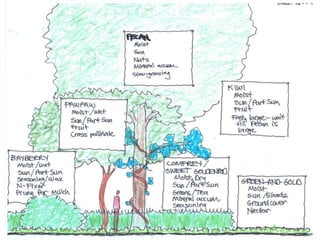 PECAN
Moist
Sun
Nuts
Mineral accum.
Slow-growing
KIWI
Moist
Sun/Part Sun
Fruit
large - wait
till Pecan is
large
PAWPAW
Moist/Wet
Sun/Part Sun
Fruit
Cross pollinate
BAYBERRY
Moist/Wet
Sun/Part Sun
Seasoning/Wax
N-Fixer
Prune for Mulch
COMFREY/
SWEET GOLDENROD
Moist, Dry
Sun/Part Sun
Greens/Tea
Mineral accum.
Seasoning
GREEN-AND-GOLD
Moist
Sun/Shade
Groundcover
Nectar